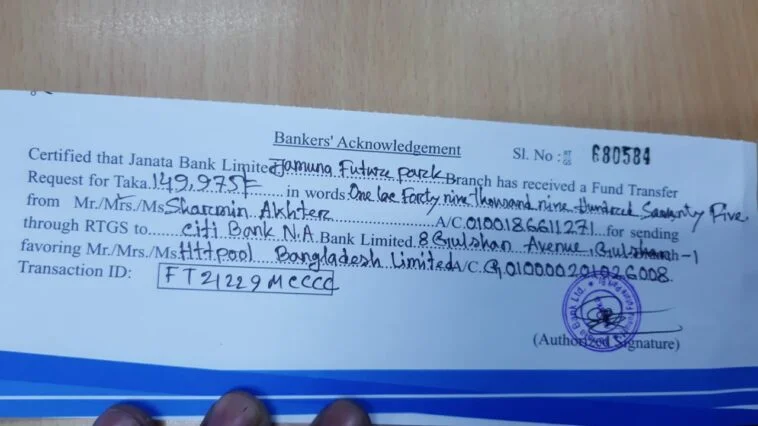 Bankers' Acknowledgement
Sl. No : RT GS 680584
Certified that Janata Bank Limited Jamuna Future park Branch has received a Fund Transfer
Request for Taka 149,975/= in words One lac Forty nine thousand nine Hundred Seventy Five
from Mr./Mrs./Ms Sharmin Akhter A/C. 0100186611271 for sending
through RTGS to Citi Bank N.A. Bank Limited. 8 Gulshan Avenue, Gulshan-1
favoring Mr./Mrs./Ms. Httpool Bangladesh Limited A/C. G010000201026008
Transaction ID: FT21229MCCCC
(Authorized Signature)